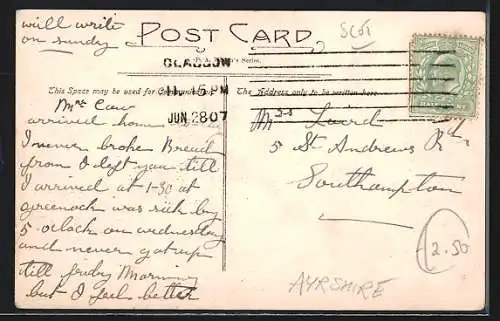 will write
on sunday
POST CARD
Scot
's Series.
GLASGOW
11. 5 PM
JUN 28 07
This Space may be used for Communication
The Address only to be written here
Mrs Caw
arrived home
I never broke Bread
from I left you till
I arrived at 1-30 at
greenock was sick by
5 oclock on wednesday
and never got up
till friday Morning
but I feel better
Mrs Laird
5 St Andrews Rd
Southampton
2.50
AYRSHIRE